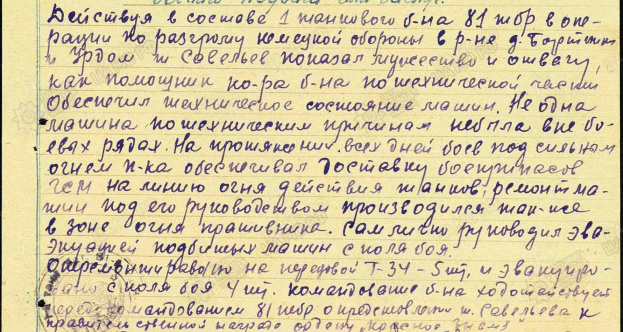 Действуя в составе 1 танкового б-на 81 тбр в опе-
рации по разгрому немецкой обороны в р-не д.
и Урдом т Савельев показал мужество и отвагу,
как помощник ко-ра б-на по технической части
Обеспечил техническое состояние машин. Не одна
машина по техническим причинам не была вне бо-
евых рядах. На протяжении всех дней боев под сильным
огнем п-ка обеспечивал доставку боеприпасов
гсм на линию огня действия танков, ремонт ма-
шин под его руководством производился так-же
в зоне огня противника. Сам лично руководил эва-
куацией подбитых машин с поля боя.
на передовой Т-34 - 5 шт, и эвакуиро-
вано с поля боя 4 шт. Командование б-на ходатайствует
перед командованием 81 тбр о т. Савельева к
правительственной награде